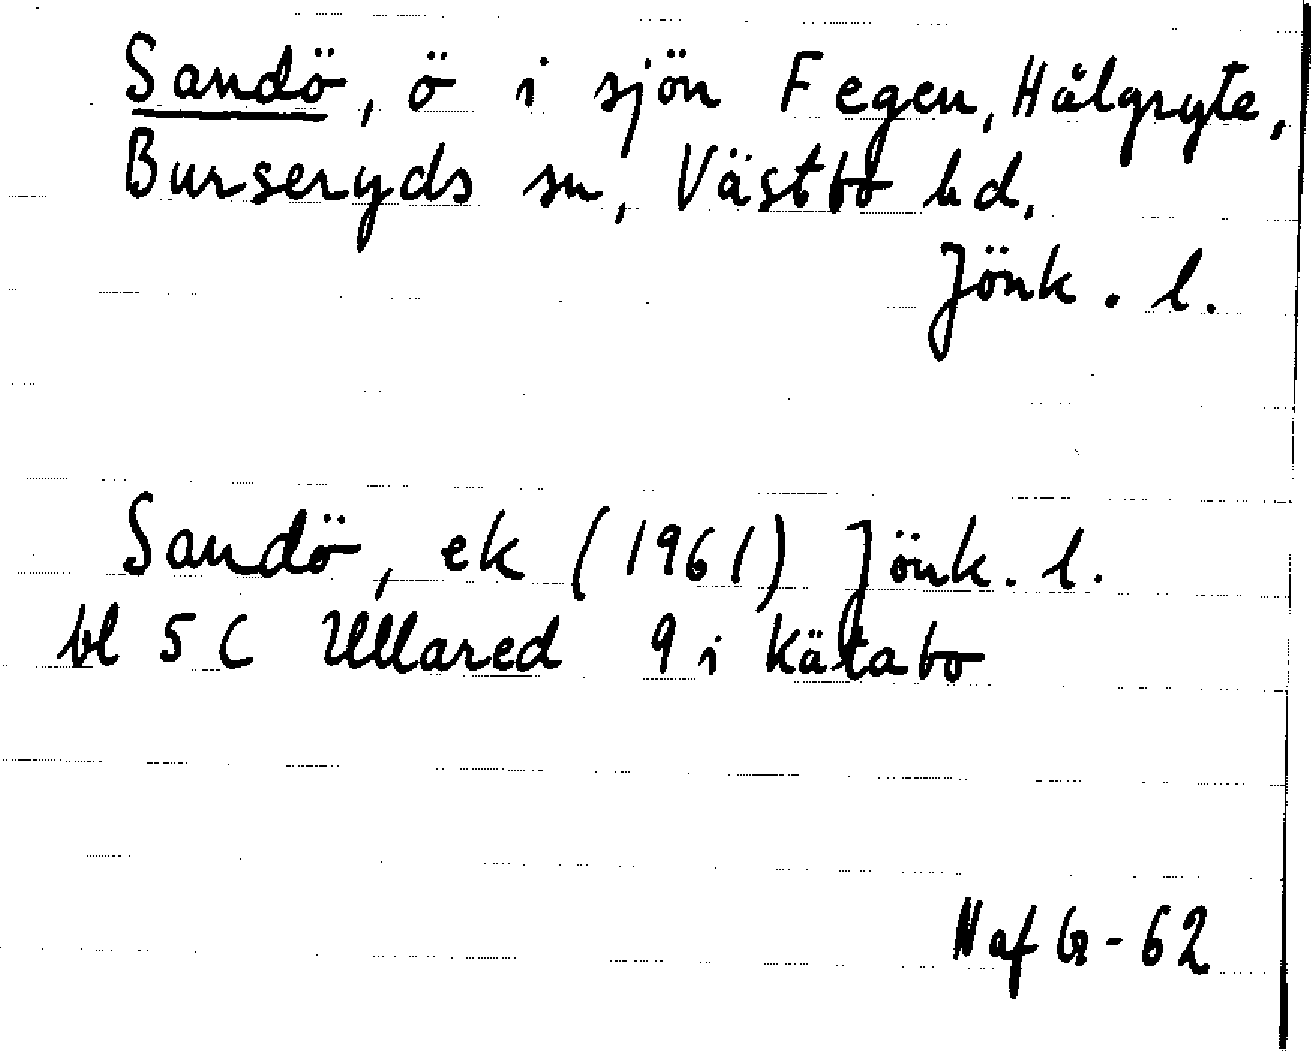 Sandö, ö i sjön Fegen, Hålgryte,
Burseryds sn, Västbo hd.
Jönk. l.
Sandö, ek (1961) Jönk. l.
bl 5 C Ullared 9 i Kätabo
N af G-62